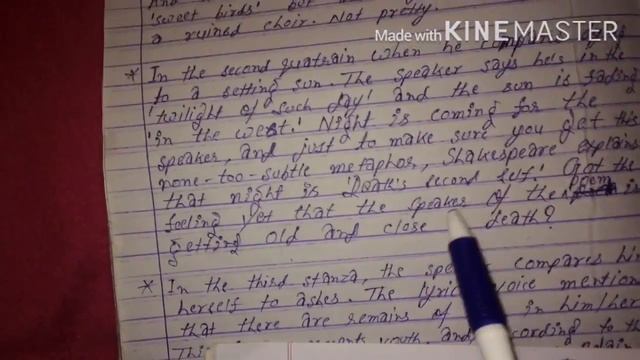 'sweet birds' but
a ruined choir. Not pretty.
Made with KINEMASTER
* In the second quatrain when he compares
to a setting sun. The speaker says he's in the
'twilight of such day' and the sun is fading
'in the west.' Night is coming for the
speaker, and just to make sure you get this
none-too-subtle metaphor, Shakespeare explains
that night is 'Death's second self.' Got the
feeling yet that the speaker of the poem is
getting old and close death?
* In the third stanza, the compares him
herself to ashes. The lyric voice mention
that there are remains of in him/her
youth, and according to th